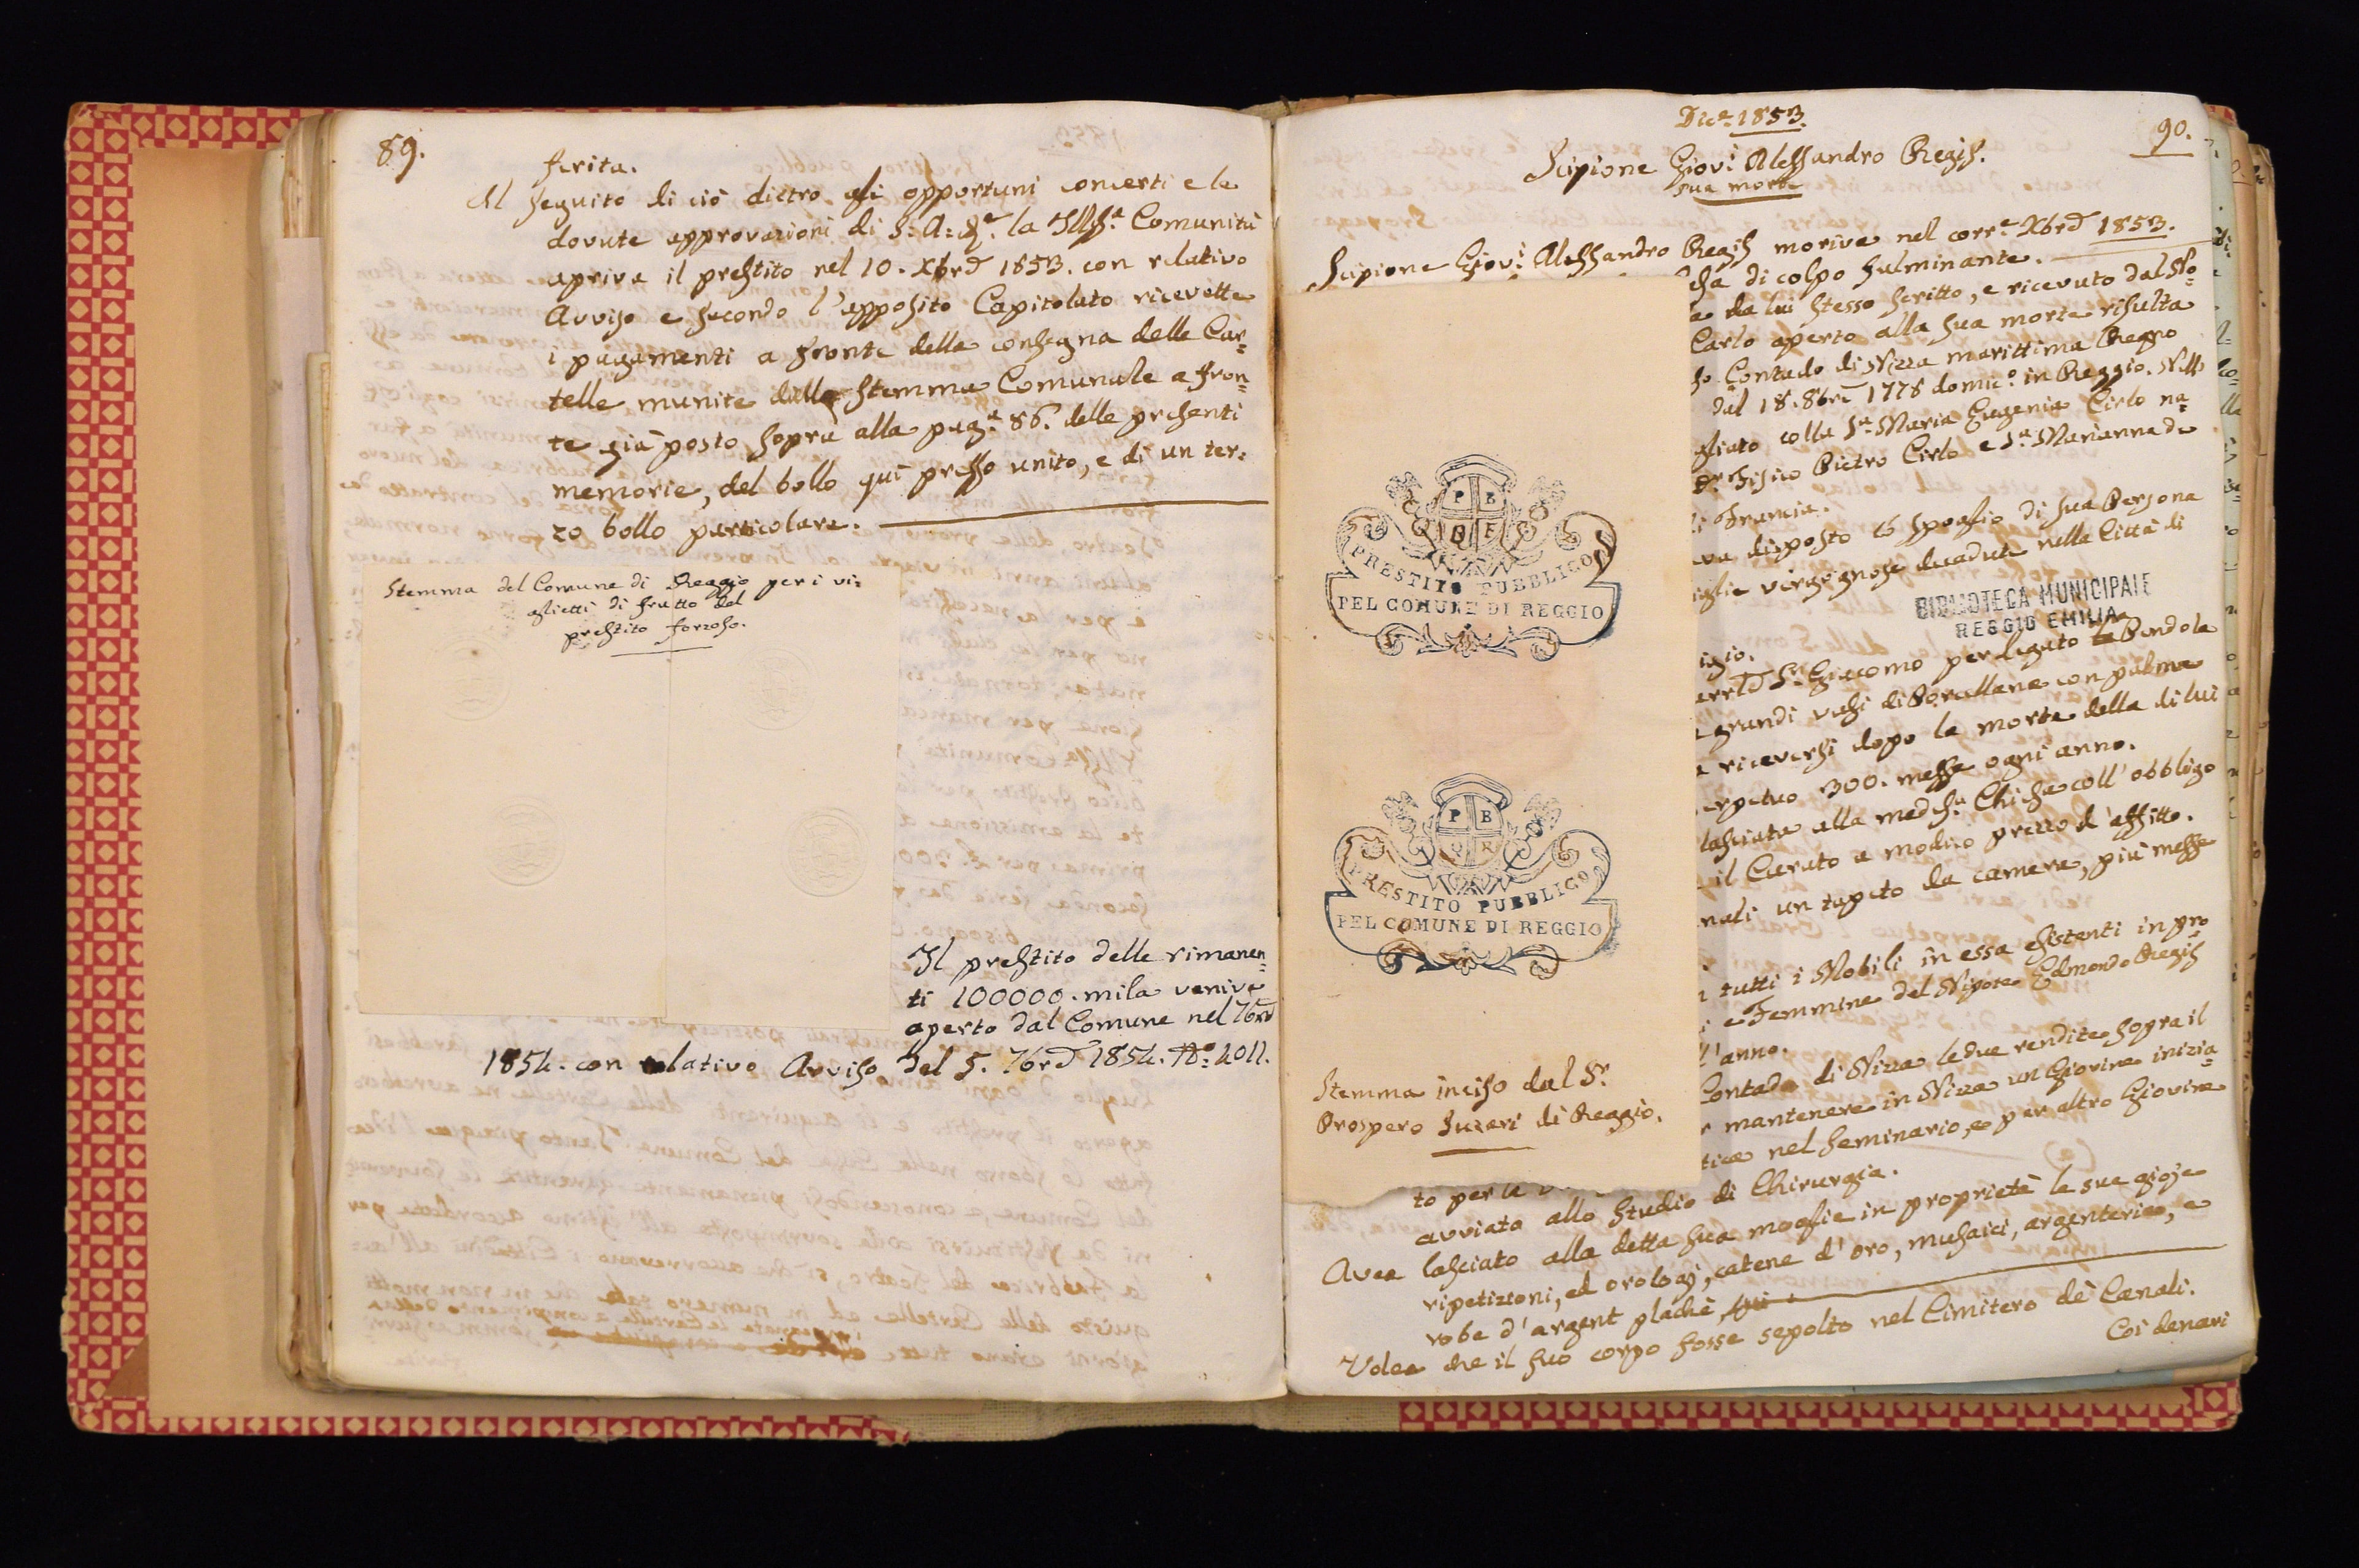 89.
ferita.
Al seguito di ciò dietro gli opportuni concerti e le
dovute approvazioni di S: A: R.e la Illss.a Comunità
apriva il prestito nel 10. Xbre 1853. con relativo
Avviso e secondo l'apposito Capitolato ricevette
i pagamenti a fronte della consegna delle Car=
telle munite dello Stemma Comunale a fron=
te già posto sopra alla pag.a 86. delle presenti
memorie, del bollo quì presso unito, e di un ter=
zo bollo particolare.
Stemma del Comune di Reggio per i vi=
glietti di frutto del
prestito forzoso.
Il prestito delle rimanen=
ti 100000. mila veniva
aperto dal Comune nel 7bre
1854. con relativo Avviso del 5. 7bre 1854. No: 4011.
Dice. 1853.
90.
Scipione Giov.i Alessandro Regis.
sua morte
Scipione Giov.i Alessandro Regis moriva nel corr.e Xbre 1853.
di colpo fulminante.
da lui stesso scritto, e ricevuto dal No=
Carlo aperto alla sua morte risulta
so Contado di Nizza marittima Regno
dal 18. 8bre 1778 domic.o in Reggio.
gliato colla S.a Maria Eugenia Cirlo na=
Fisico Pietro Cirlo e S.a Marianna de
di Francia.
disposto lo spoglio di sua Persona
iglie vergognose decadute nella Città di
BIBLIOTECA MUNICIPALE
REGGIO EMILIA
S. Giacomo per legato la Pendola
grandi vasi di Porcellana con palma
a riceversi dopo la morte della di lui
erpetuo 300. messe ogni anno.
lasciata alla medes.a Chiesa coll'obbligo
il Curato a modico prezzo d'affitto.
nali un tapeto da camera, più messe
tutti i Mobili in essa esistenti in pro
e Femmine del Nipote Edmondo Regis
l'anno.
Contado di Nizza le due rendite sopra il
r mantenere in Nizza un Giovine inizia=
tico nel Seminario, e per altro Giovine
PRESTITO PUBBLICO
PEL COMUNE DI REGGIO
PRESTITO PUBBLICO
PEL COMUNE DI REGGIO
Stemma inciso dal S.r
Prospero Suzeri di Reggio.
to per la
avviato allo Studio di Chirurgia.
Avea lasciato alla detta sua moglie in proprietà le sue gioje
ripetizioni, ed orologj, catene d'oro, musaici, argenterie, e
robe d'argent plachè,
Volea che il suo corpo fosse sepolto nel Cimitero dè Canali.
Coi denari